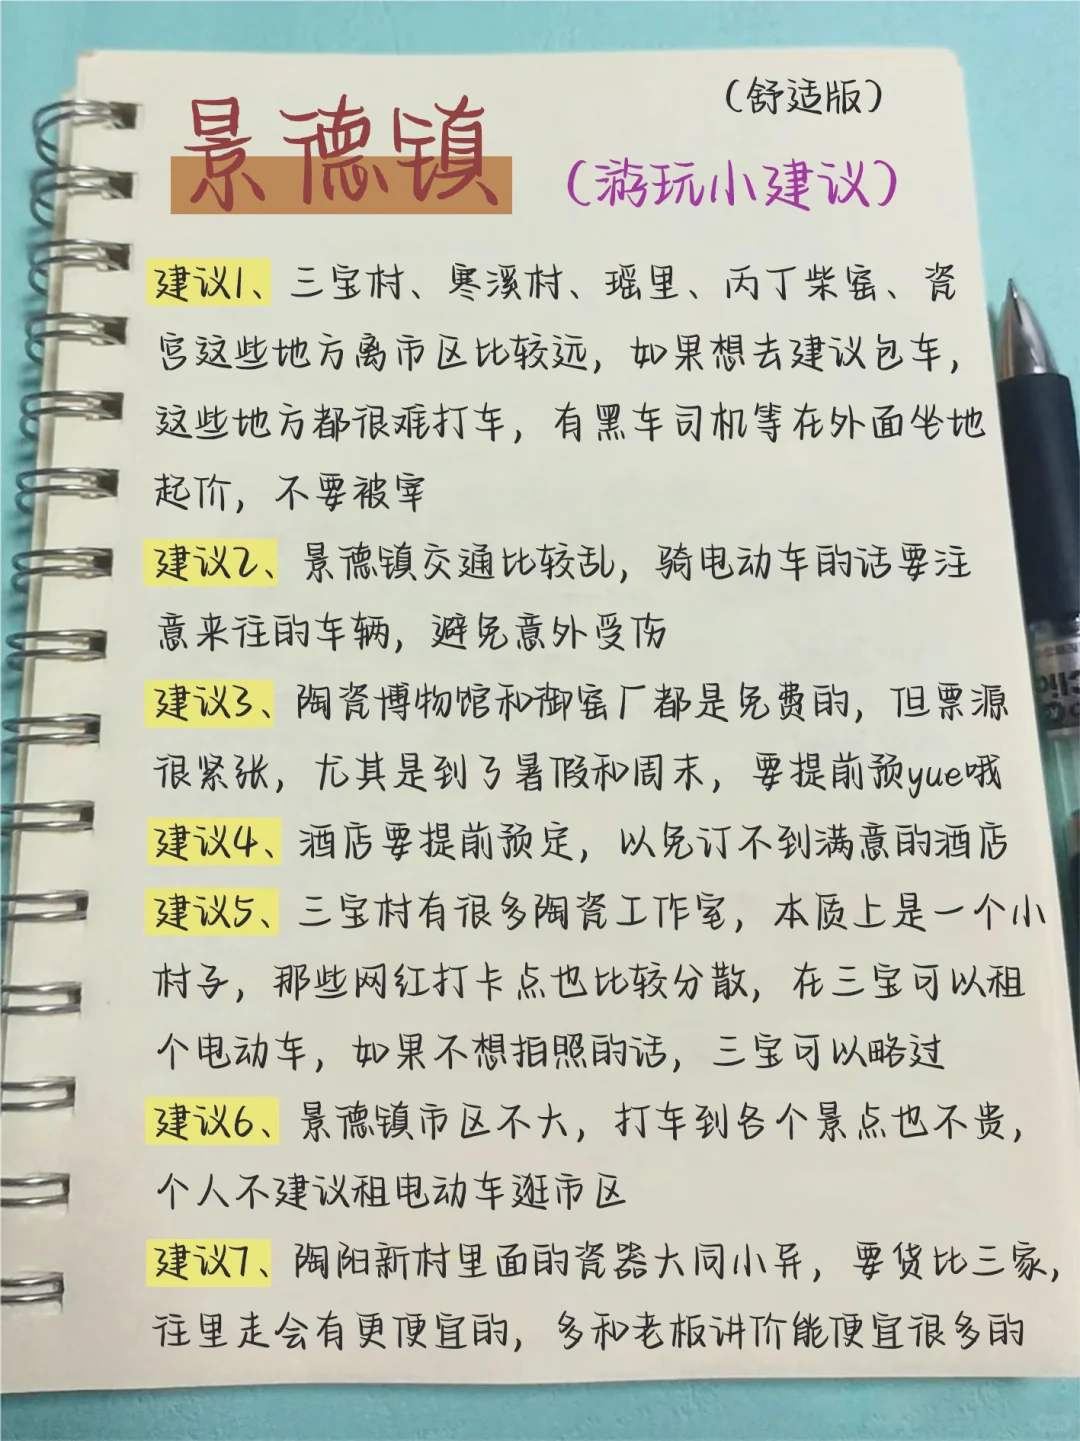 （舒适版）
景德镇
（游玩小建议）
建议1、三宝村、寒溪村、瑶里、丙丁柴窑、瓷
宫这些地方离市区比较远，如果想去建议包车，
这些地方都很难打车，有黑车司机等在外面坐地
起价，不要被宰
建议2、景德镇交通比较乱，骑电动车的话要注
意来往的车辆，避免意外受伤
建议3、陶瓷博物馆和御窑厂都是免费的，但票源
很紧张，尤其是到了暑假和周末，要提前预yue哦
建议4、酒店要提前预定，以免订不到满意的酒店
建议5、三宝村有很多陶瓷工作室，本质上是一个小
村子，那些网红打卡点也比较分散，在三宝可以租
个电动车，如果不想拍照的话，三宝可以略过
建议6、景德镇市区不大，打车到各个景点也不贵，
个人不建议租电动车逛市区
建议7、陶阳新村里面的瓷器大同小异，要货比三家，
往里走会有更便宜的，多和老板讲价能便宜很多的